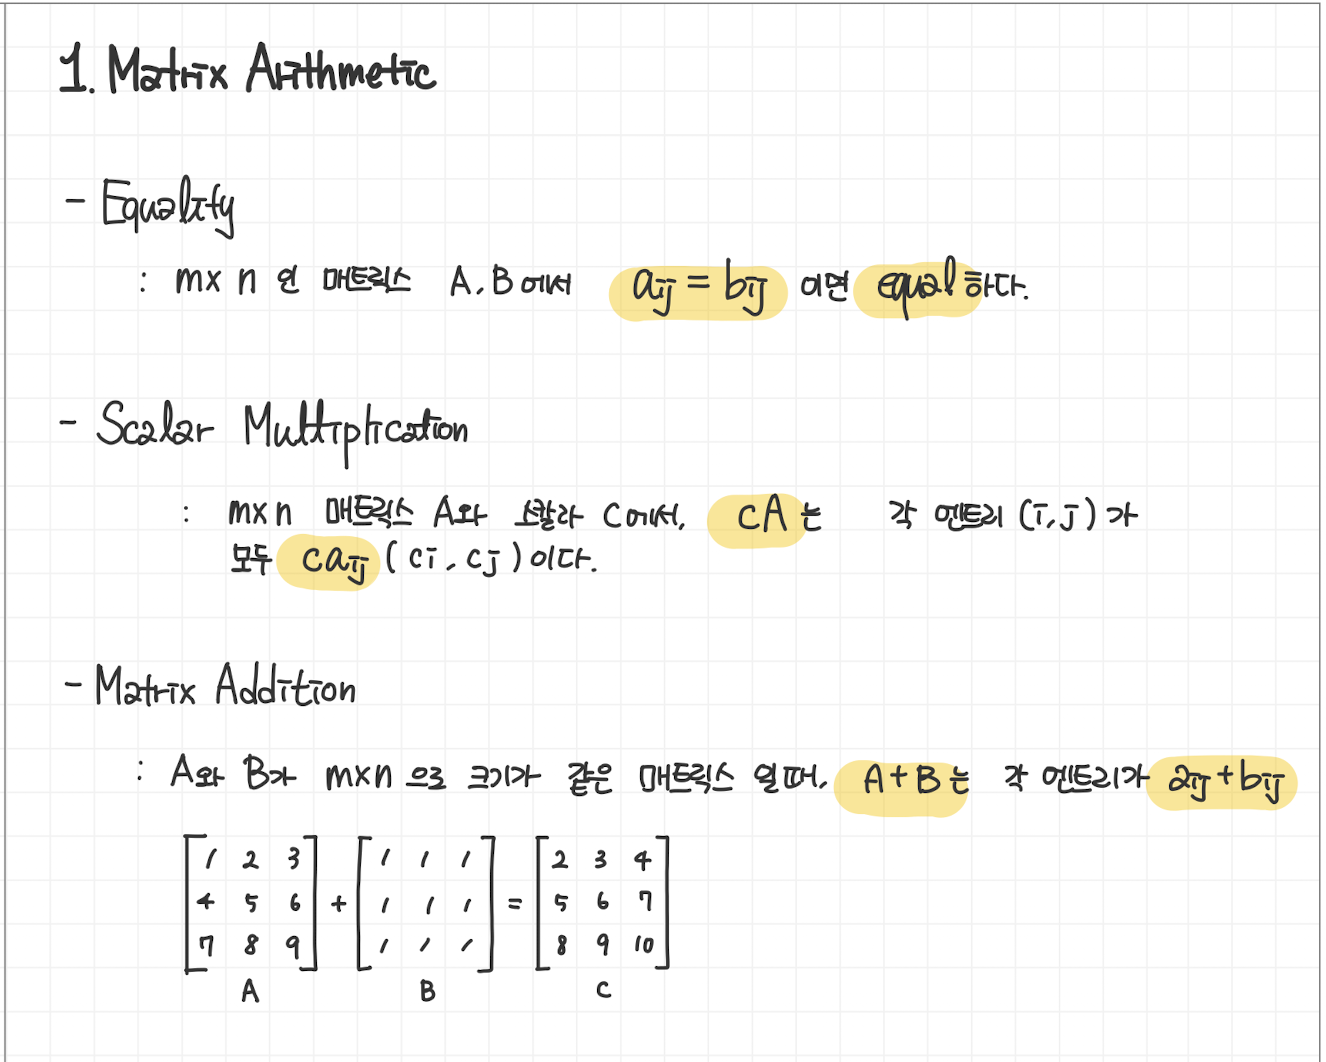 1. Matrix Arithmetic
- Equality
: m x n 인 매트릭스 A, B 에서 aij = bij 이면 equal 하다.
- Scalar Multiplication
: mxn 매트릭스 A와 스칼라 C에서, cA는 각 엔트리 (i, j) 가
모두 caij (ci, cj) 이다.
- Matrix Addition
: A와 B가 mxn 으로 크기가 같은 매트릭스 일때, A+B는 각 엔트리가 aij + bij
1 2 3 1 1 1 2 3 4
4 5 6 + 1 1 1 = 5 6 7
7 8 9 1 1 1 8 9 10
A B C